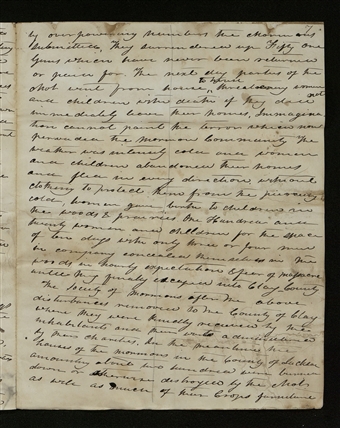 by overpowering numbers the Mormons
submitted, They surrendered up Fifty One
Guns which have never been returned
or paid for. The next day parties of the
to house
Mob went from house, threatening women
and children with death if they did not
immediately leave their homes. Immagina
tion cannot paint the terror which now
pervaded the Mormon Community The
weather was intensely cold and women
and children abandoned their homes
and fled in every direction without
clothing to protect them from the piercing
cold, women gave birth to children in
the woods & prairies One Hundred and
twenty women and children for the space
of ten days with only three or four men
in company concealed themselves in the
woods in hourly expectation & fear of massacre
until they finally escaped into Clay County
The Society of Mormons after the above
disturbances removed to the County of Clay
where they were kindly received by the
inhabitants and their wants administered
by their charities. In the mean time the
houses of the Mormons in the County of Jackson
amounting about two hundred were burned
down or otherwise destroyed by the Mob
as well as much of their Crops furniture